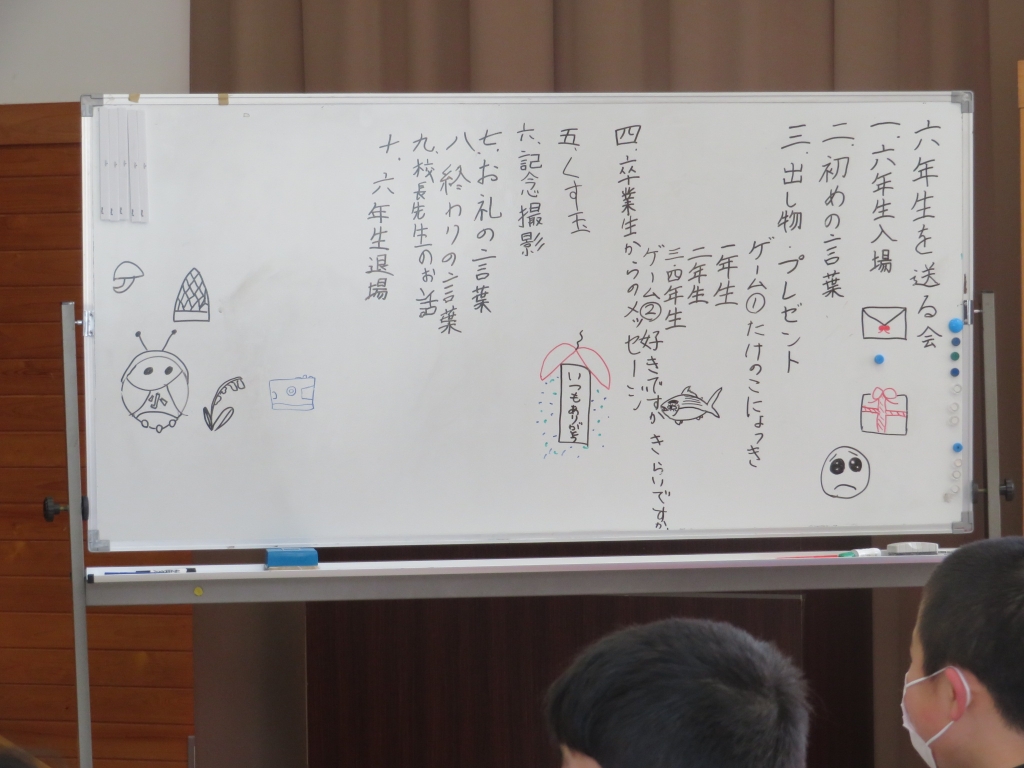 六年生を送る会
一.六年生入場
二.初めの言葉
三.出し物・プレゼント
ゲーム①たけのこにょっき
一年生
二年生
三四年生
ゲーム②好きですかきらいですか
四.卒業生からのメッセージ
五.くす玉
いつもありがとう
六.記念撮影
七.お礼の言葉
八.終わりの言葉
九.校長先生のお話
十.六年生退場
小